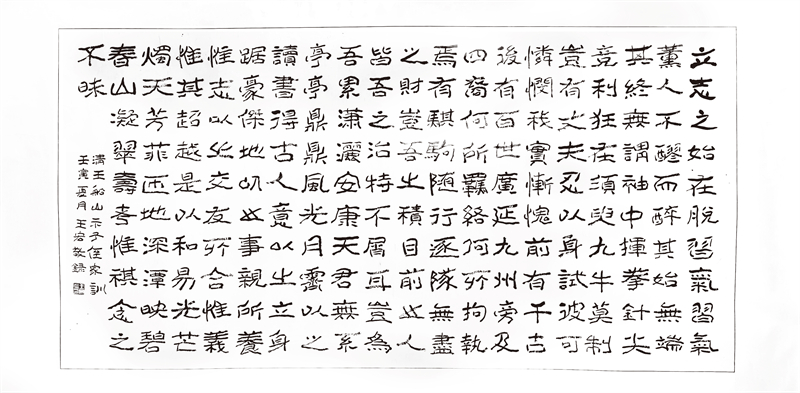 立志之始在脱習氣習氣
薰人不醪而醉其始無端
其終無謂袖中揮拳針尖
竞利狂在須臾九牛莫制
豈有丈夫忍以身試彼可
憐憫我實慚愧前有千古
後有百世廣延九州旁及
四裔何所羈絡何所拘執
焉有騏駒随行逐隊無盡
之財豈吾之積目前之人
皆吾之治特不屑耳豈為
吾累瀟灑安康天君無系
亭亭鼎鼎風光月霽以之
讀書得古人意以之立身
踞豪傑地以之事親所養
惟志以之交友所合惟義
惟其超越是以和易光芒
燭天芳菲匝地深潭映碧
春山凝翠壽考惟祺念之
不昧
清王船山示子侄家訓
壬寅夏月王宏錄